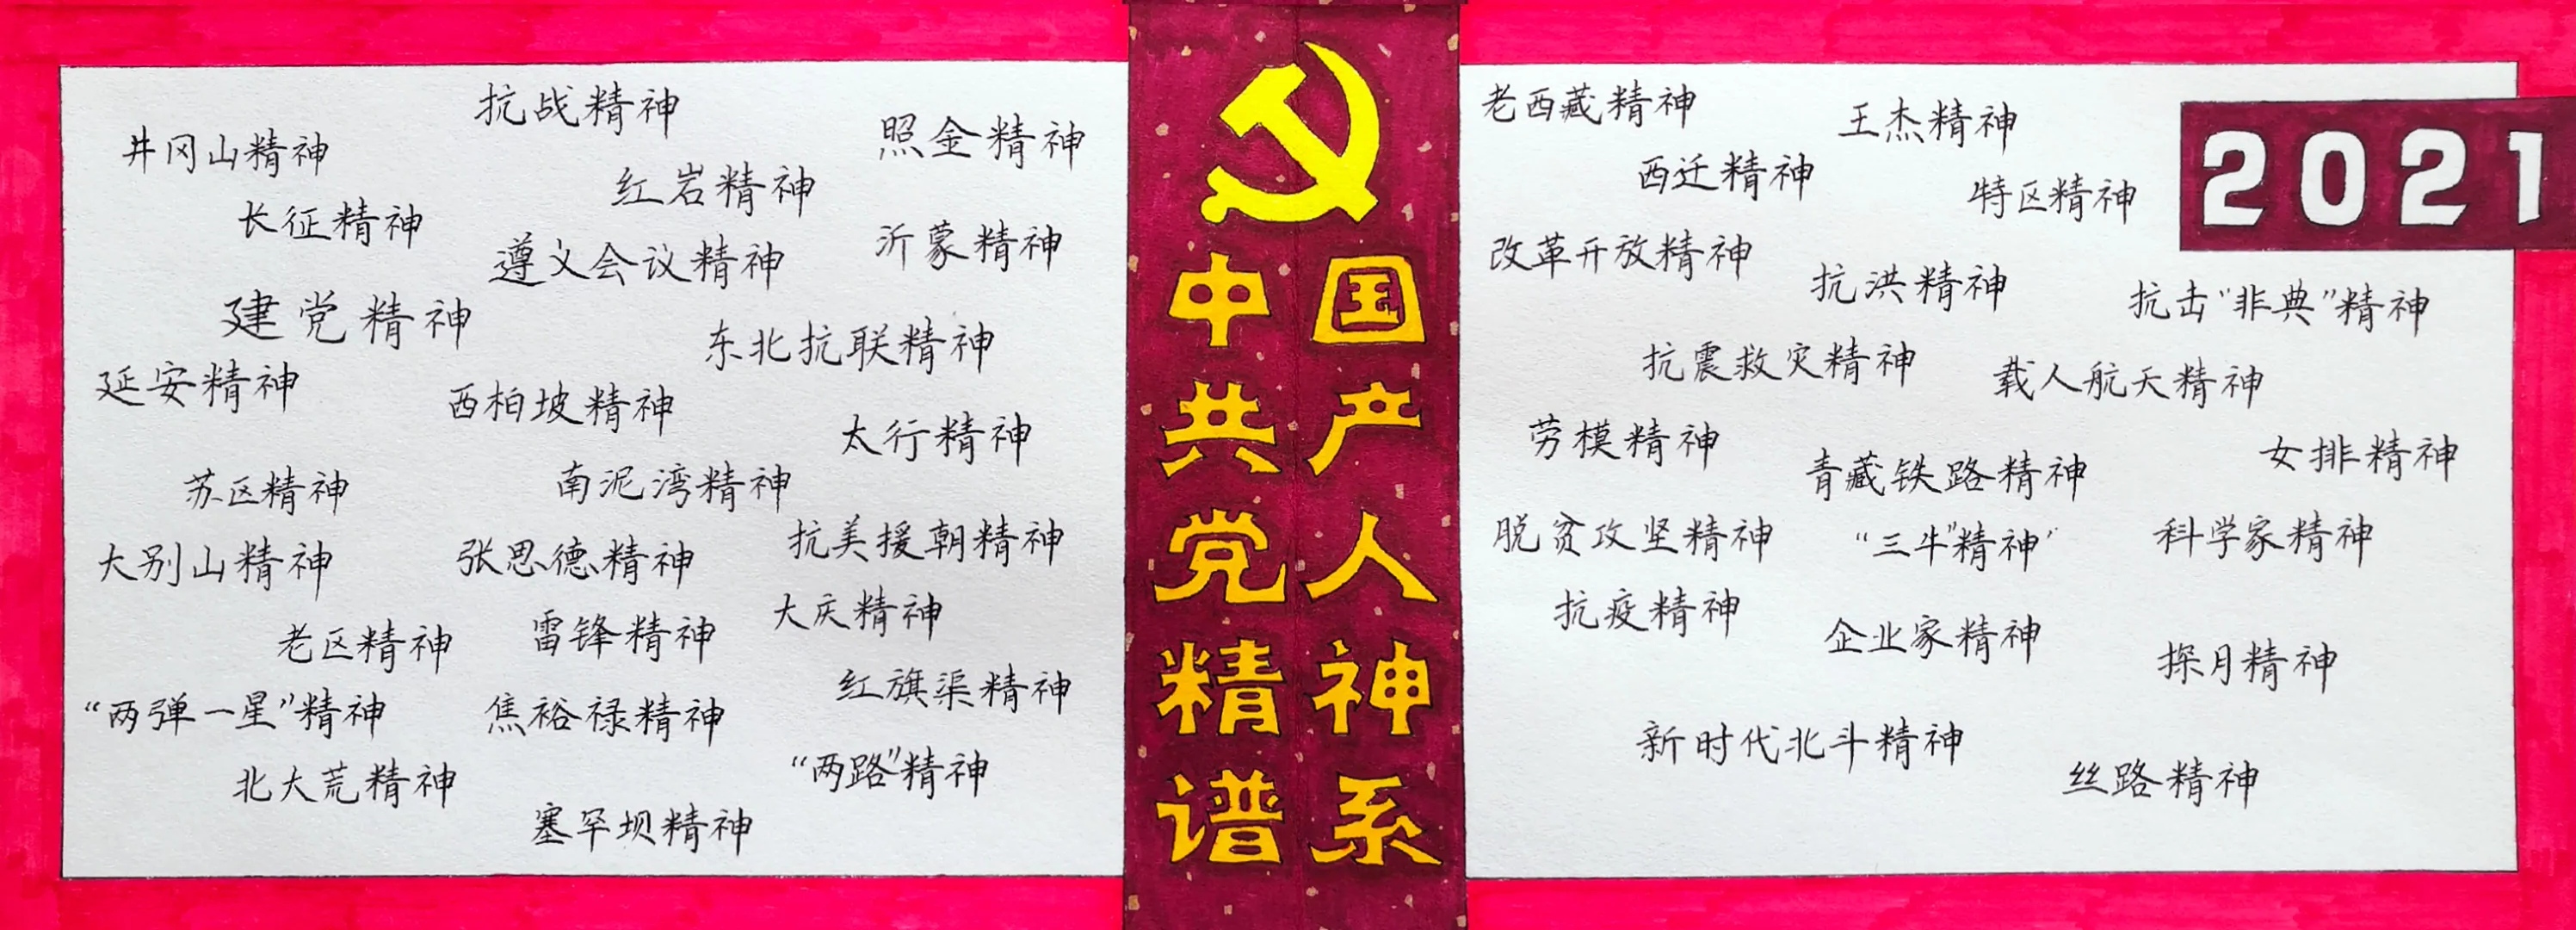 抗战精神
井冈山精神
照金精神
红岩精神
长征精神
遵义会议精神
沂蒙精神
建党精神
东北抗联精神
延安精神
西柏坡精神
太行精神
苏区精神
南泥湾精神
大别山精神
张思德精神
抗美援朝精神
老区精神
雷锋精神
大庆精神
“两弹一星”精神
焦裕禄精神
红旗渠精神
北大荒精神
“两路”精神
塞罕坝精神
中国
共产
党人
精神
谱系
老西藏精神
王杰精神
2021
西迁精神
特区精神
改革开放精神
抗洪精神
抗击“非典”精神
抗震救灾精神
载人航天精神
劳模精神
青藏铁路精神
女排精神
脱贫攻坚精神
“三牛”精神”
科学家精神
抗疫精神
企业家精神
探月精神
新时代北斗精神
丝路精神